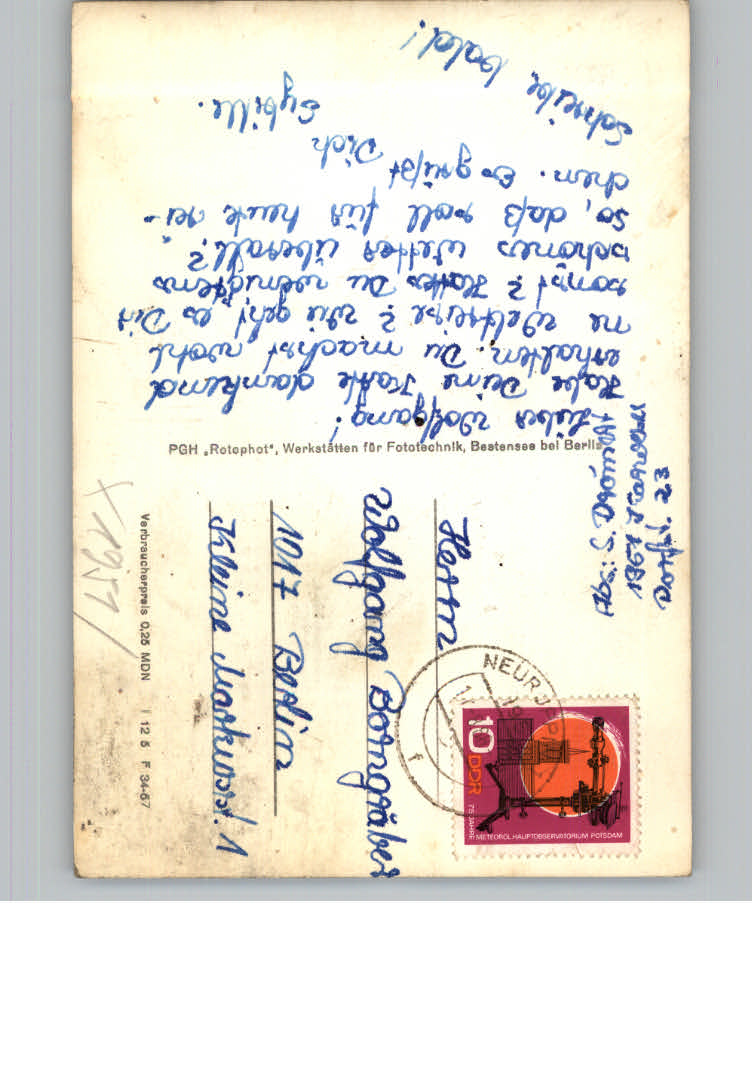 Lieber Wolfgang!
Habe Deine Karte dankend
erhalten. Du machst wohl
ne Weltreise? Wie geht es Dir
sonst? Hattes Du wenigstens
schönes Wetter überall?
So, daß soll für heute rei-
chen. Es grüßt Dich
Sybille.
Schreibe bald!
PGH „Rotophot“, Werkstätten für Fototechnik, Bestensee bei Berlin
Abs: S.
1951
Postf. 23
Herrn
Wolfgang Borngräber
1017 Berlin
Kleine Markusstr. 1
Verbraucherpreis 0,25 MDN I 12 5 F 34-67
X1957
NEURUPP
10 DDR
75 JAHRE METEOROL. HAUPTOBSERVATORIUM POTSDAM